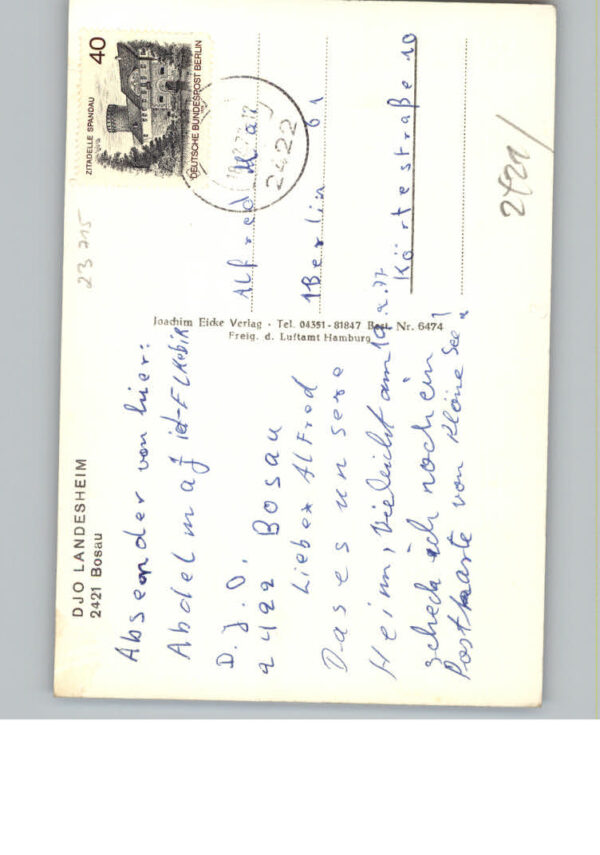 DJO LANDESHEIM
2421 Bosau
Absender von hier:
Abdelmaf
D. J. O.
2422 Bosau
Lieber Alfred
Das es unsere
Heim, vieleicht am 19.2.77
scheck ich noch ein
Postkaarte von Klöne See!
Joachim Eicke Verlag · Tel. 04351-81847 Best. Nr. 6474
Freig. d. Luftamt Hamburg
40
ZITADELLE SPANDAU
DEUTSCHE BUNDESPOST BERLIN
2422
Alfred
1 Berlin 61
Körtestraße 10
23 715
2421/